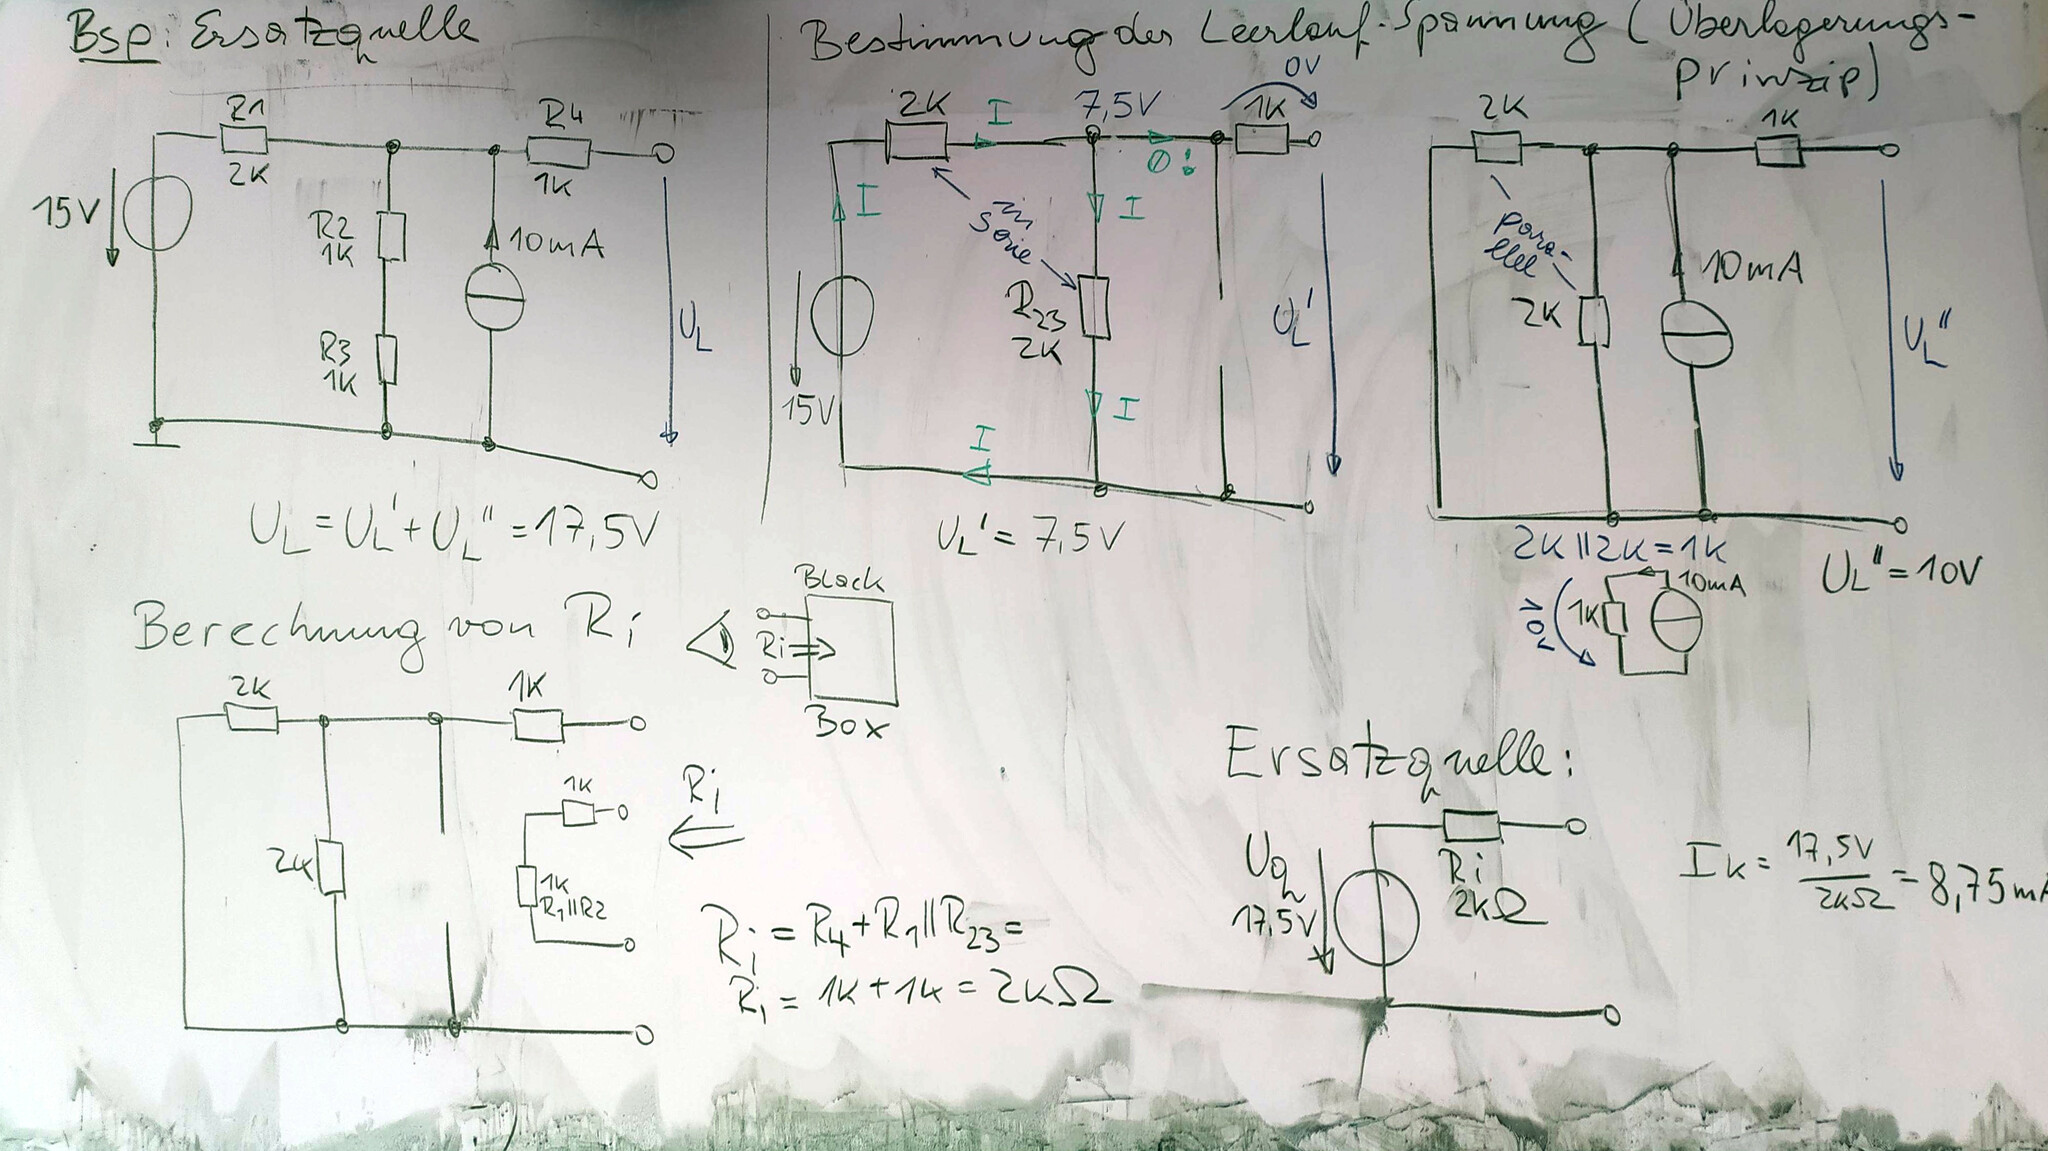 Bsp: Ersatzquelle
R1
2K
R4
1K
15V
R2
1K
10mA
R3
1K
UL
UL = UL' + UL'' = 17,5V
Bestimmung der Leerlauf-Spannung (Überlagerungs-
prinzip)
2K
I
7,5V
0V
1K
I
in
Serie
I
R23
2K
UL'
15V
I
I
UL' = 7,5V
2K
1K
Para-
llel
2K
10mA
UL''
2K || 2K = 1K
1K
10mA
UL'' = 10V
Berechnung von Ri
Black
Ri
Box
2K
1K
2K
1K
1K
R1||R2
Ri
Ri = R4 + R1 || R23 =
Ri = 1K + 1K = 2KΩ
Ersatzquelle:
Uq
17,5V
Ri
2KΩ
IK = 17,5V / 2KΩ = 8,75mA